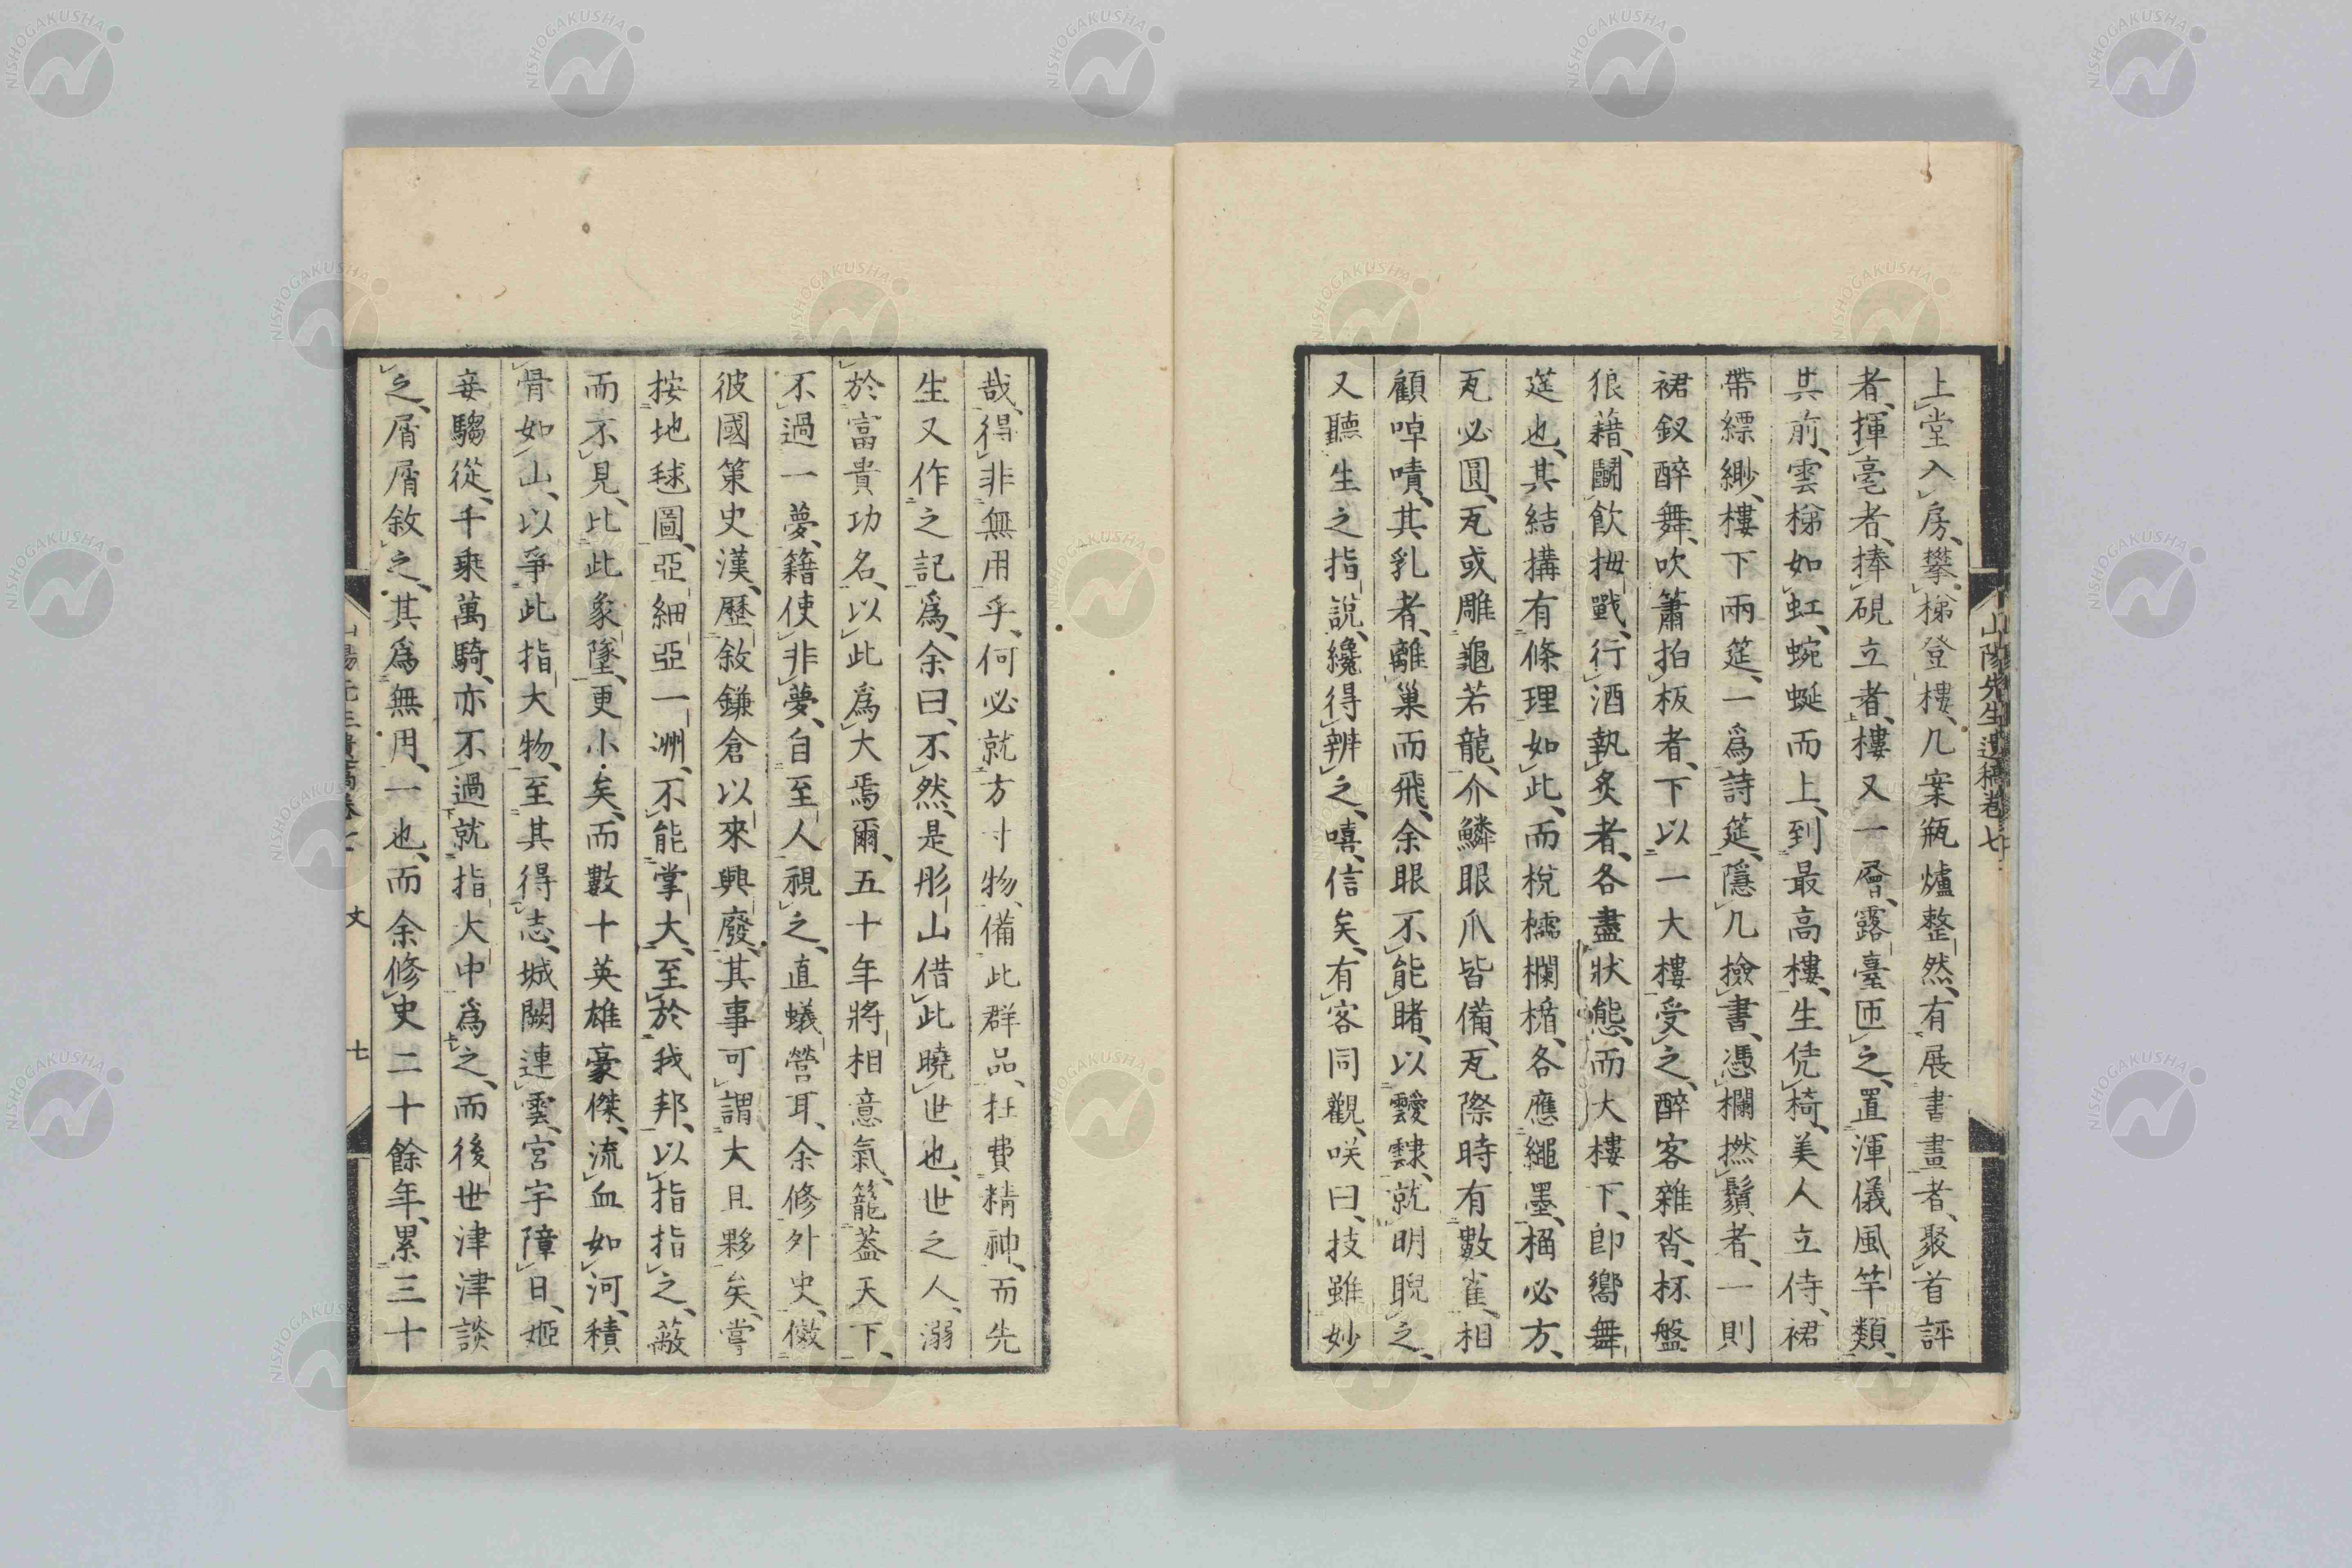 山陽先生遺稿卷七
上堂入房、攀梯登樓、几案瓶爐整然、有展書畫者、聚首評
者、揮毫者、捧硯立者、樓又一層、露臺匝之、置渾儀風竿類、
其前、雲梯如虹、蜿蜒而上、到最高樓、生凭椅、美人立侍、裙
帶縹緲、樓下兩筵、一爲詩筵、隱几撿書、憑欄撚鬚者、一則
裙釵醉舞、吹簫拍板者、下以一大樓受之、醉客雜沓、杯盤
狼藉、鬭飲拇戰、行酒執炙者、各盡狀態、而大樓下、卽嚮舞
筵也、其結搆有條理如此、而梲檽欄楯、各應繩墨、桷必方、
瓦必圓、瓦或雕龜若龍、介鱗眼爪皆備、瓦際時有數雀、相
顧啅嘖、其乳者、離巢而飛、余眼不能睹、以靉靆、就明睨之、
又聽生之指說、纔得辨之、嘻、信矣、有客同觀、咲曰、技雖妙
哉、得非無用乎、何必就方寸物、備此群品、枉費精神、而先
生又作之記爲、余曰、不然、是彤山借此曉世也、世之人、溺
於富貴功名、以此爲大焉爾、五十年將相意氣、籠蓋天下、
不過一夢、籍使非夢、自至人視之、直蟻營耳、余修外史、傚
彼國策史漢、歷敘鎌倉以來興廢、其事可謂大且夥矣、嘗
按地毬圖、亞細亞一洲、不能掌大、至於我邦、以指指之、蔽
而不見、比此象墜、更小矣、而數十英雄豪傑、流血如河、積
骨如山、以爭此指大物、至其得志、城闕連雲、宮宇障日、姬
妾騶從、千乘萬騎、亦不過就指大中爲之、而後世津津談
之、屑屑敘之、其爲無用、一也、而余修史二十餘年、累三十
文
七
NISHOGAKUSHA